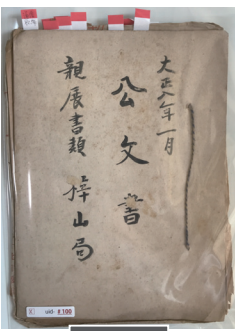 大正八年一月
公文書
親展書類 樺山局